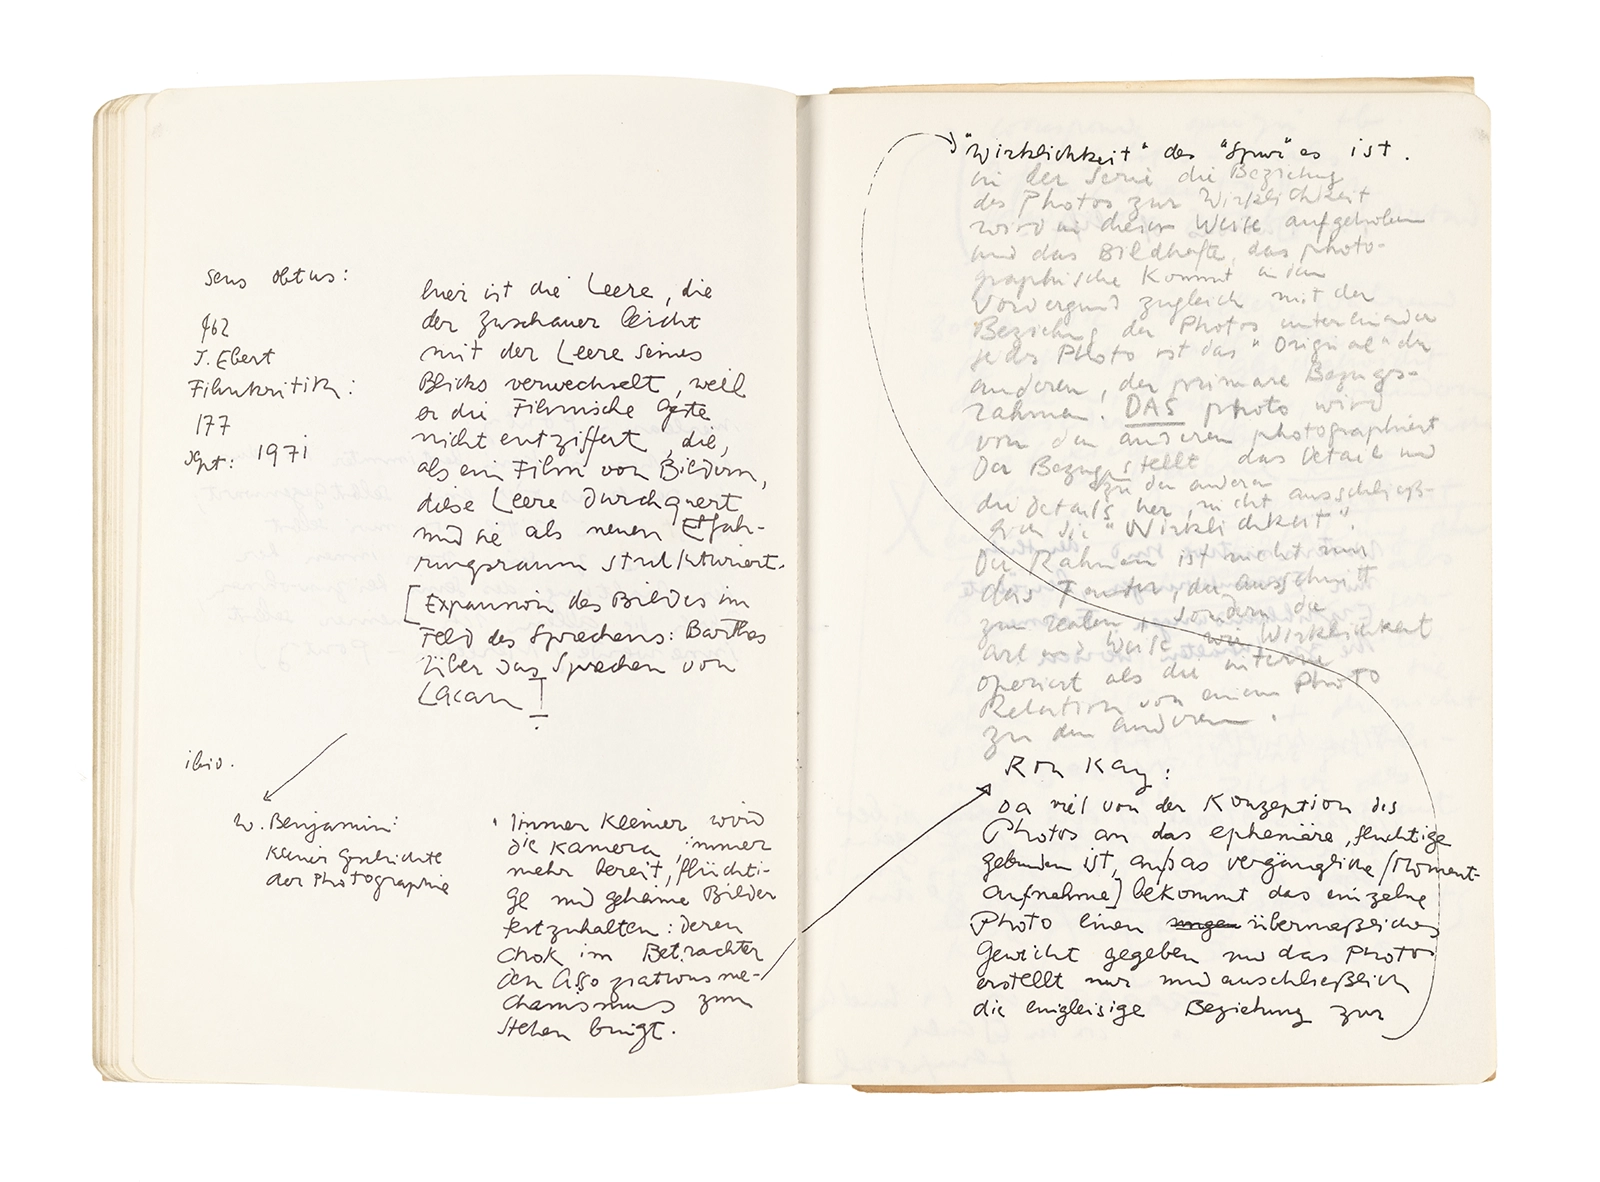 sens obtus:
462
J. Ebert
Filmkritik:
177
Sept: 1971
hier ist die Leere, die
der Zuschauer leicht
mit der Leere seines
Blicks verwechselt, weil
er die Filmische Geste
nicht entziffert, die,
als ein Film von Bildern,
diese Leere durchquert
und sie als neuen Erfah-
rungsraum strukturiert.
[Expansion des Bildes im
Feld des Sprechens: Barthes
über das Sprechen von
Lacan]
ibid.
W. Benjamin:
Kleine Geschichte
der Photographie
Immer kleiner wird
die Kamera, immer
mehr bereit, flüchti-
ge und geheime Bilder
festzuhalten: deren
Chok im Betrachter
den Assoziationsme-
chanismus zum
stehen bringt.
"Wirklichkeit" des "Spur" es ist.
in der Serie die Beziehung
des Photos zur Wirklichkeit
wird in dieser Weise aufgehoben
und das Bildhafte, das photo-
graphische kommt in den
Vordergrund zugleich mit der
Beziehung der Photos untereinander
jedes Photo ist das "Original" der
anderen, der primäre Bezugs-
rahmen. DAS photo wird
von den anderen photographiert
Der Bezug stellt das Detail und
zu den anderen
die Details her, nicht ausschließ-
lich die "Wirklichkeit".
Der Rahmen ist nicht nur
das Fenster, der Ausschnitt
zum realen, sondern die
Art und Weise wie Wirklichkeit
operiert als die interne
Relation von einem Photo
zu den anderen.
Ron Kay:
Da viel von der Konzeption des
Photos an das ephemäre, flüchtige
gebunden ist, an das vergängliche (Moment-
aufnahme) bekommt das einzelne
Photo einen übermäßiches
Gewicht gegeben und das Photo
erstellt nur und auschließlich
die eingleisige Beziehung zur